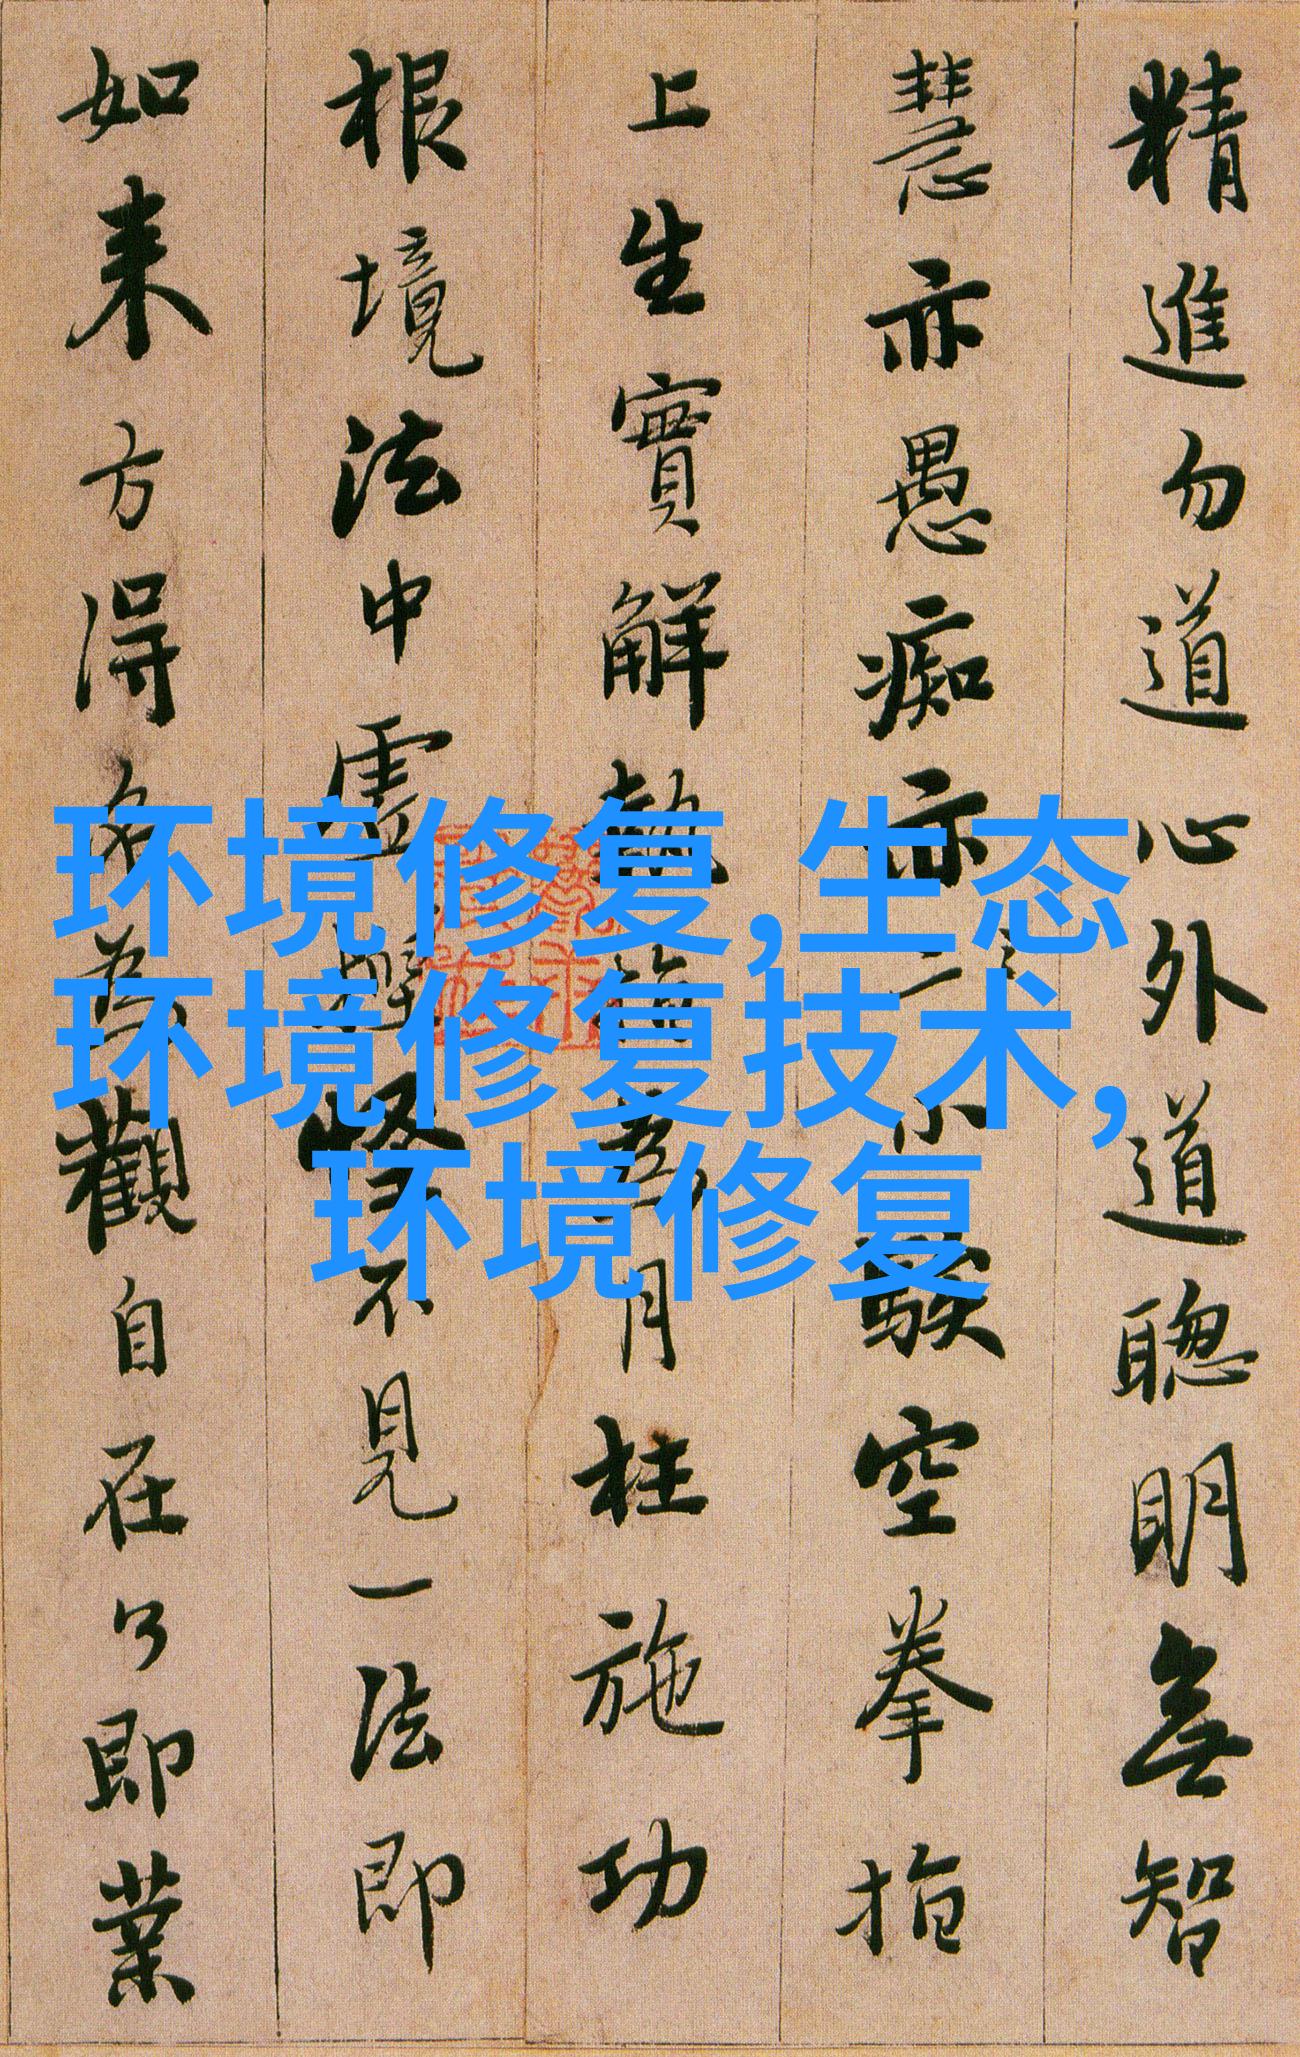 精進勿道心外道聰明無智
慧亦愚痴亦小騃空拳指
上生實解執指為月枉施功
根境法中虛捏怪不見一法即
如来方得名為觀自在了即業
环境修复,生态
环境修复技术,
环境修复